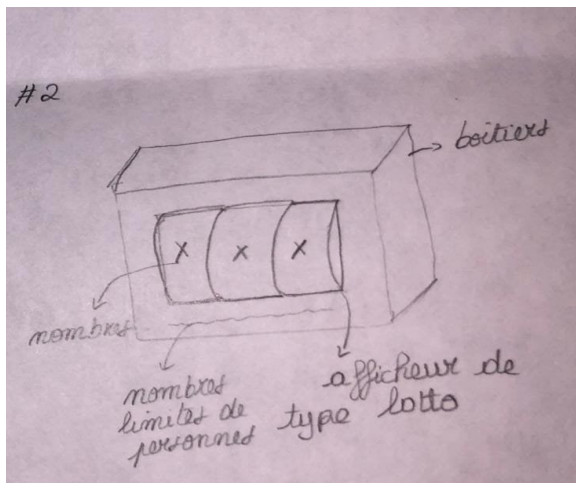 #2
boîtiers
X X X
nombres
nombres
limites de
personnes
afficheur de
type lotto